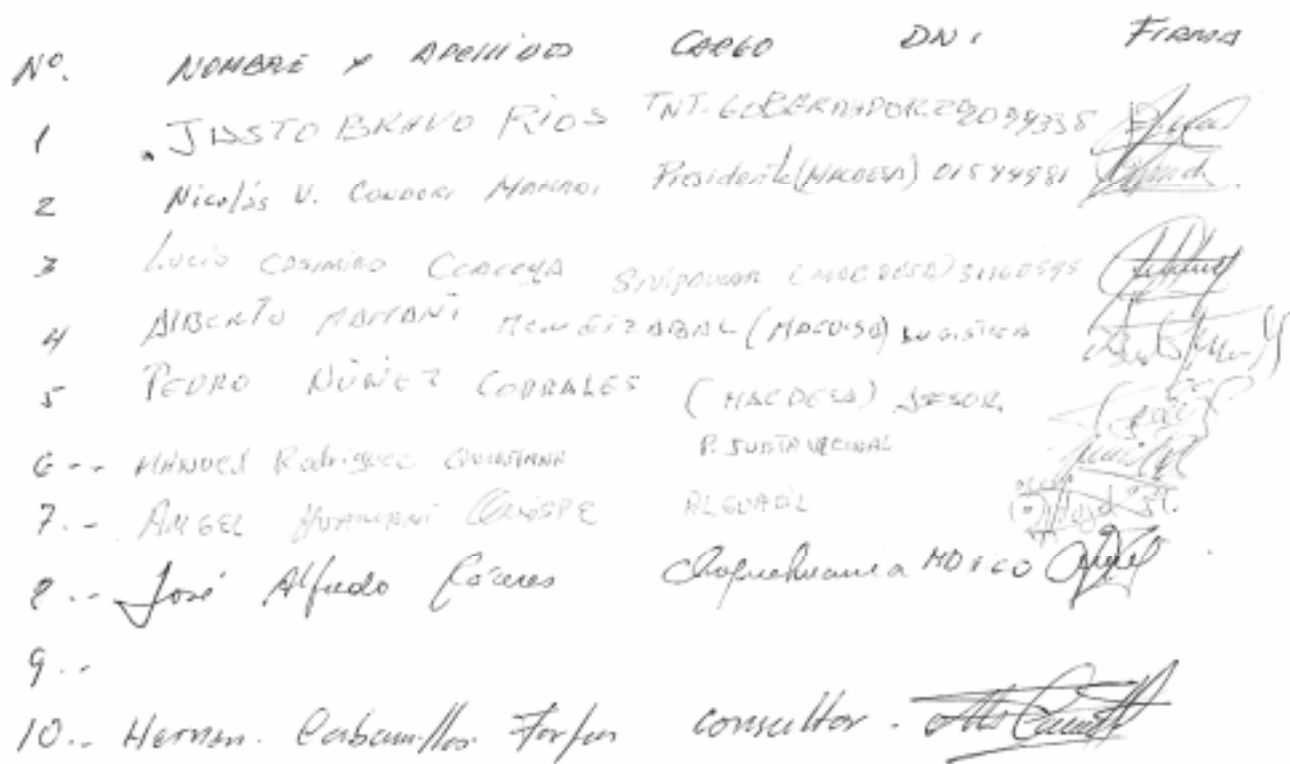 Nº. NOMBRE Y APELLIDOS CARGO DNI FIRMA
1 . JUSTO BRAVO RIOS TNT. GOBERNADOR
2 Nicolás V. CONDORI MAMANI Presidente (MACDESA) 01544981
3 Lucio CASIMIRO CCACCYA (MACDESA) 31160595
4 ALBERTO MAMANI MENDIZABAL (MACDESA) LOGISTICA
5 PEDRO NÚÑEZ CORRALES (MACDESA) ASESOR
6 -- MANUEL Rodriguez QUINTANA P. JUNTA VECINAL
7. - ANGEL HUAMANI QUISPE ALGUACIL
8 -- José Alfredo Cáceres Choquehuanca
9 --
10.- Hernan. consultor.